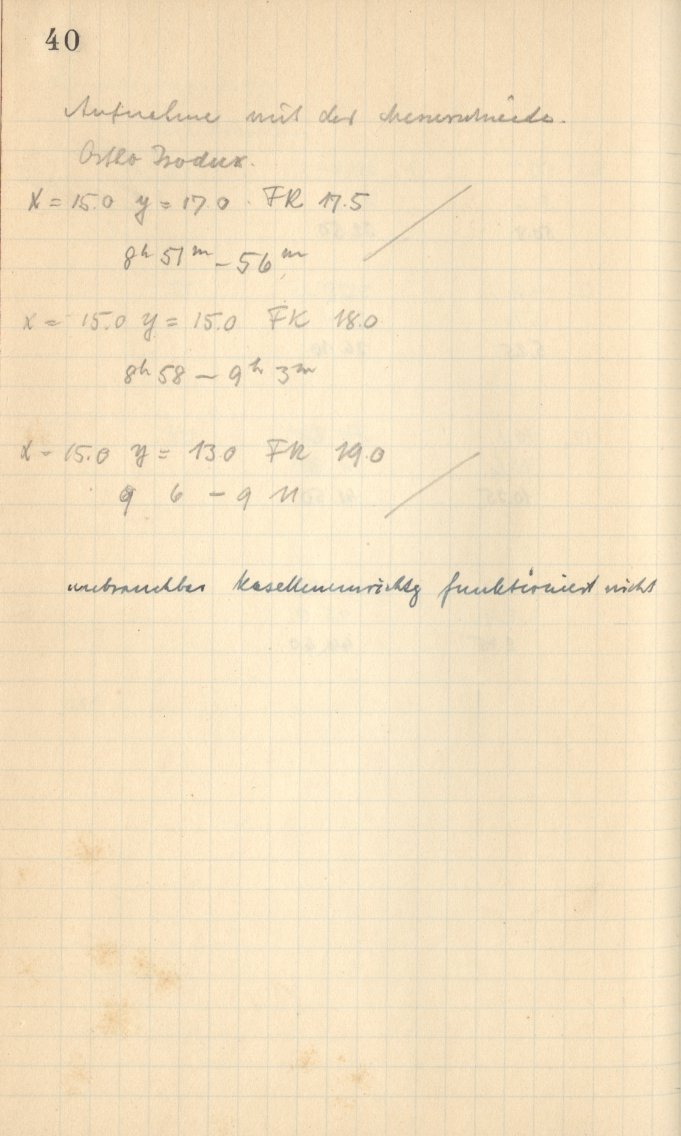 40
Aufnahme mit der Messerschneide.
Ortho Isodux.
X = 15.0 y = 17.0 FR 17.5
8h 51m – 56m
x = 15.0 y = 15.0 FR 18.0
8h 58 – 9h 3m
x = 15.0 y = 13.0 FR 19.0
9 6 – 9 11
unbrauchbar funktioniert nicht